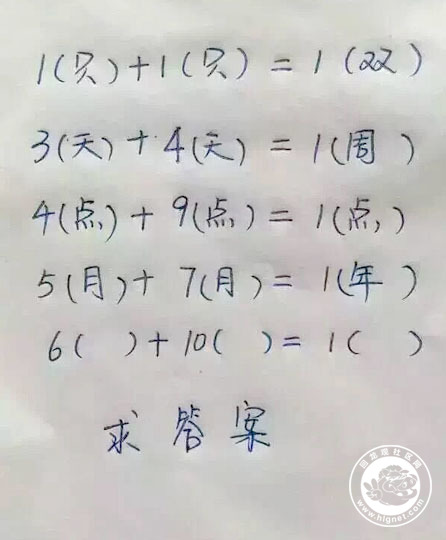 1(只)+1(只)=1(双)
3(天)+4(天)=1(周)
4(点)+9(点)=1(点)
5(月)+7(月)=1(年)
6( )+10( )=1( )
求答案
回龙观社区网
www.hlgnet.com